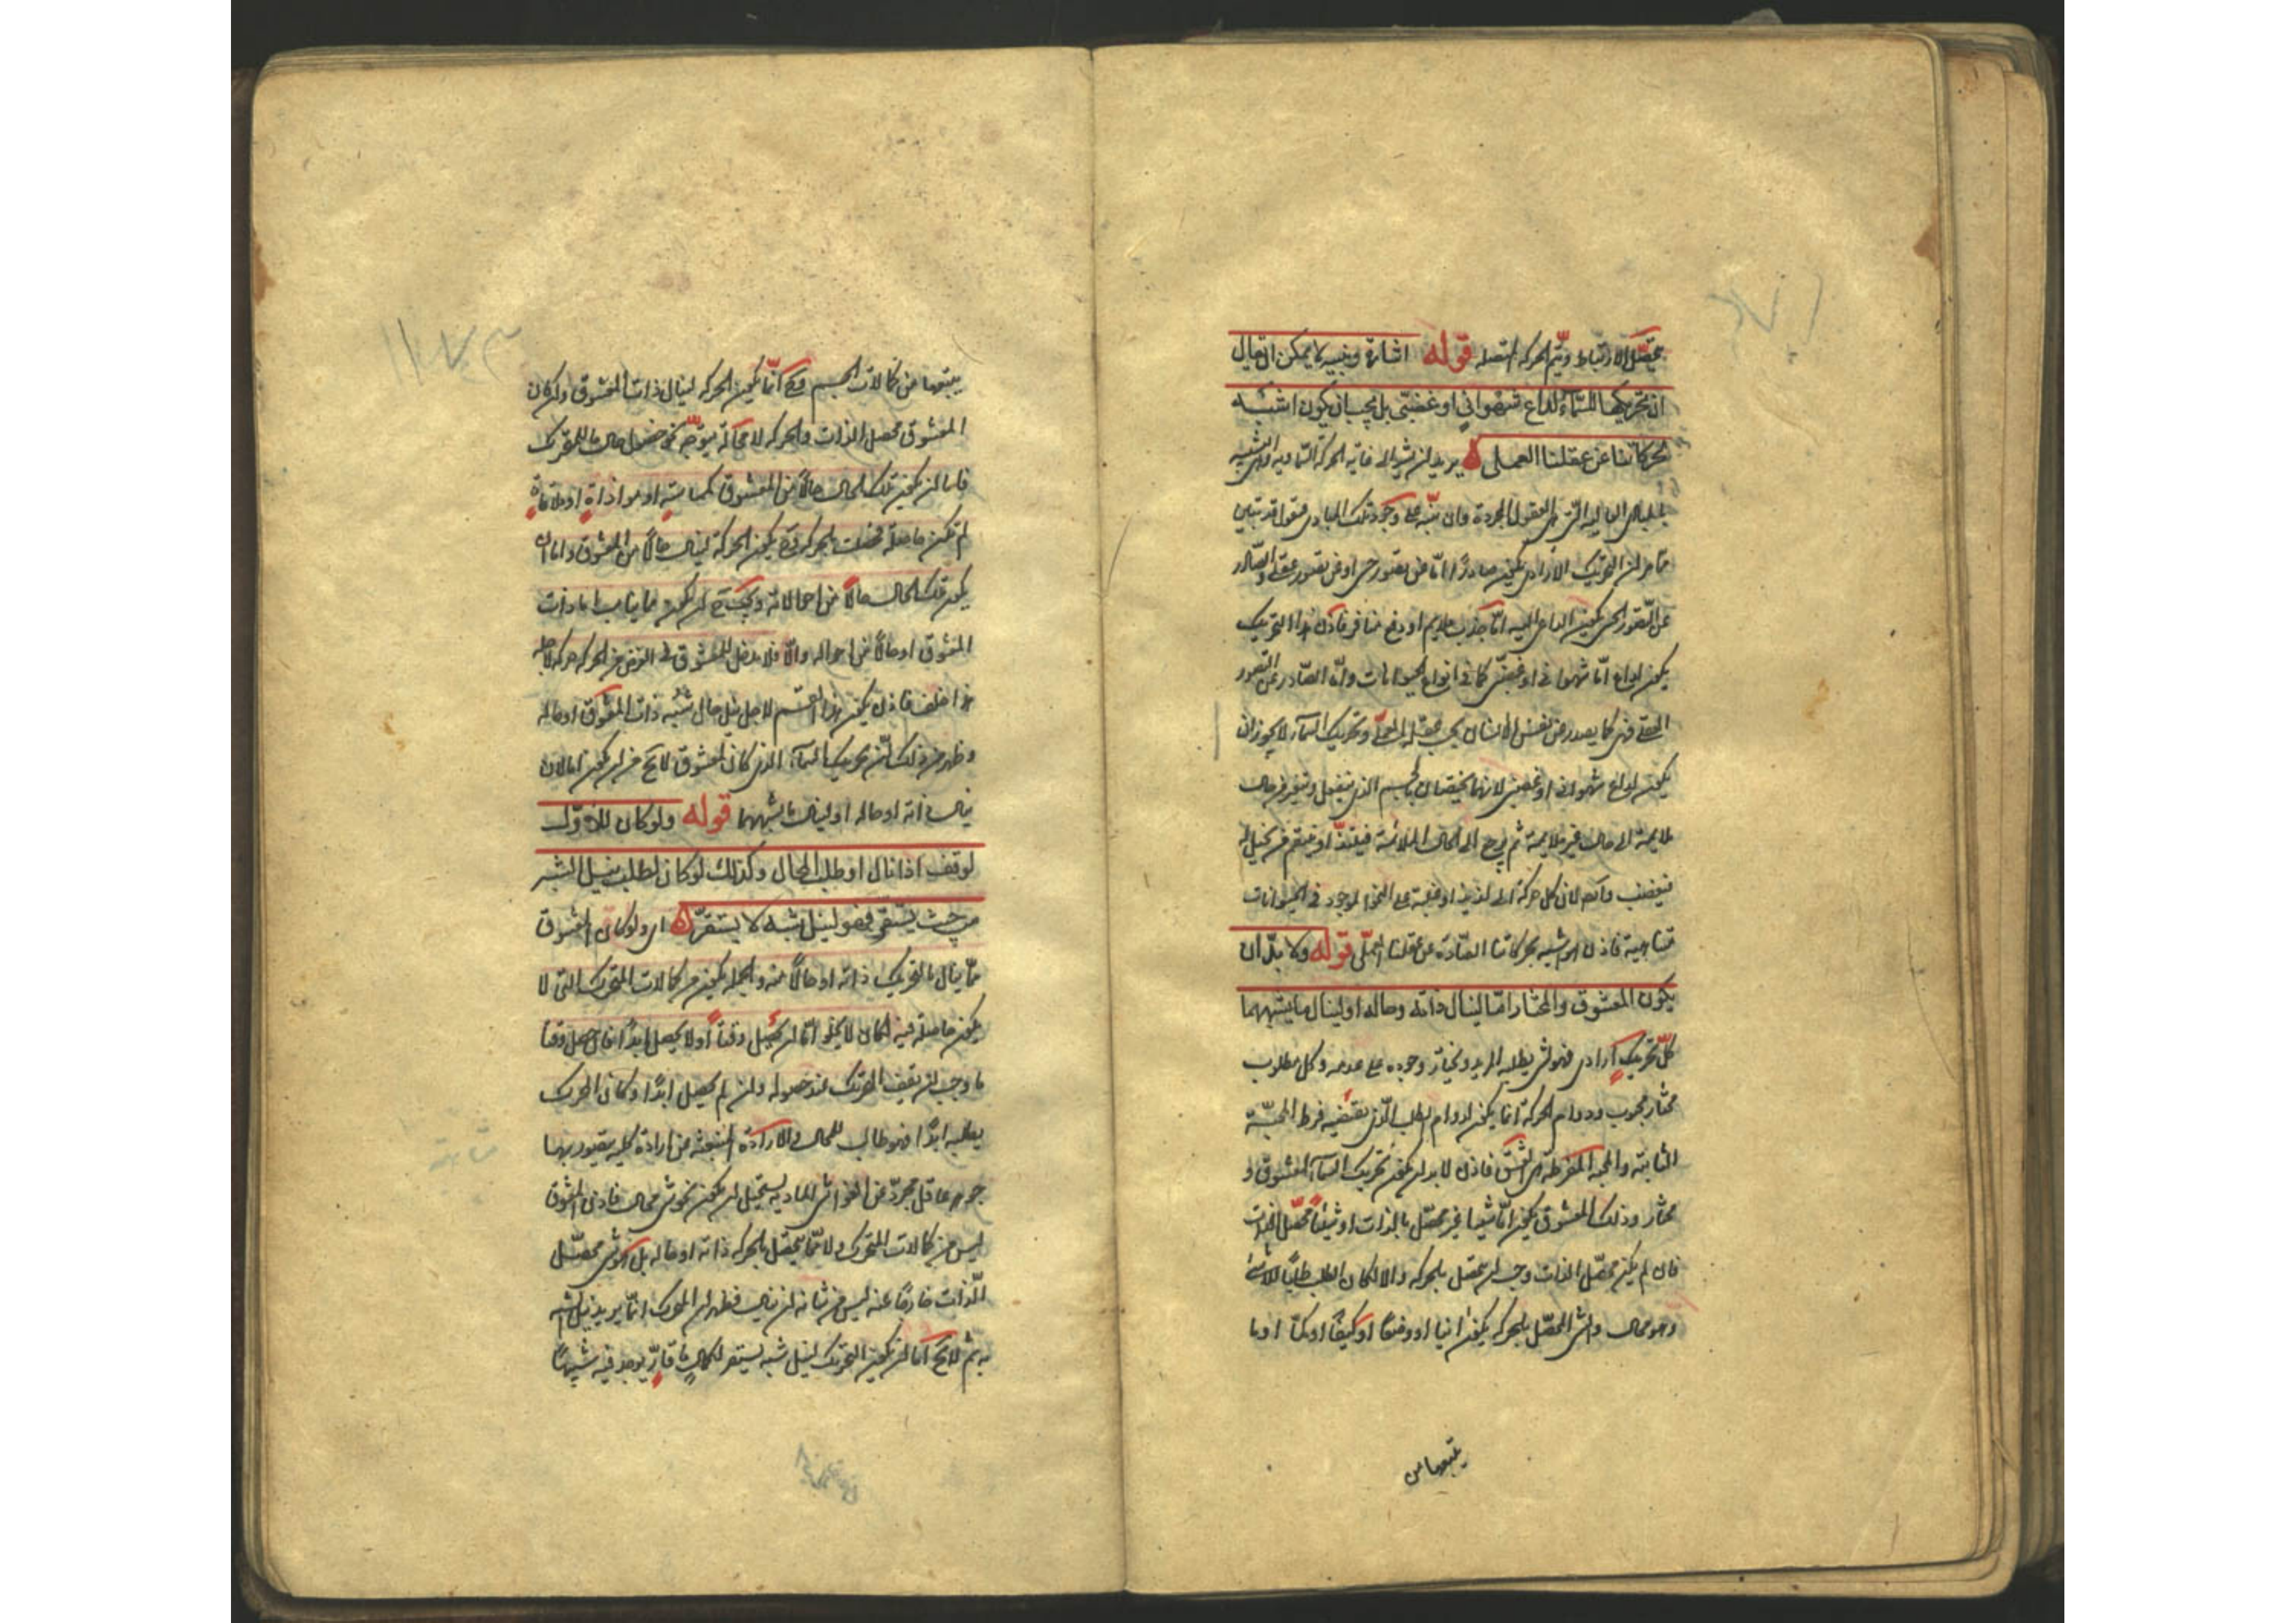 يتحصّل الارتباط ويتم الحركه المتصله قوله اشارة وتنبيه لا يمكن ان يقال
ان تحريكها للسماء لداع شهوانى او غضبى بل يجب ان يكون اشبه
بحركاتنا عن عقلنا العملى يريد ان يشير الى غاية الحركة السماويه وهى التشبه
بالمبادى العاليه التى هى العقول المجردة وان ينبّه على وجود تلك المبادى فنقول قد تبين
ممّا مر ان التحريك الارادى يكون صادرًا امّا عن تصور حسى او عن تصور عقلى والصّادر
عن التصور الحسى يكون الداعى اليه امّا جذب ملايم او دفع منافر فاذن هذا التحريك
يكون لداع امّا شهوانى او غضبى كما فى انواع الحيوانات وامّا الصّادر عن التصور
العقلى فهى كما يصدر عن نفس الانسان بحسب عقله العملى وتحريك السمآء لا يجوز ان
يكون لداع شهوانى او غضبى لانهما يختصان بالجسم الذى ينفعل ويتغير من حال
ملايمة الى حال غير ملايمة ثم يرجع الى الحال الملائمة فيلتذّ او ينتقم من مخيل له
فيغضب وايضا لان كل حركة الى لذيذ او غلبة على النحو الموجود فى الحيوانات
متناهية فاذن هو شبيه بحركاتنا الصّادرة عن عقلنا العملى قوله ولا بدّ ان
يكون المعشوق والمختار امّا لينال ذاته وحاله او لينال ما يشبههما
كلّ تحريك ارادى فهو لشى يطلبه المريد ويختار وجوده على عدمه وكل مطلوب
مختار محبوب ودوام الحركة انما يكون لدوام الطلب الّذى يقتضيه فرط المحبّة
الثابتة والمحبة المفرطة هى العشق فاذن لا بد ان يكون تحريك السمآء لمعشوق و
مختار وذلك المعشوق يكون امّا شيئا غير محصّل بالذات او شيئًا محصّل الذات
فان لم يكن محصّل الذات وجب ان يتحصل بالحركه والا لكان الطلب طلبًا للاشئ
وهو محال والشى المحصّل بالحركه يكون اينا او وضعًا او كيفًا او كمّا او ما
يتبعها من
يتبعها من كمالات الجسم وح انّما يكون الحركه لينال ذات المعشوق وان كان
المعشوق محصل الذات والحركه لا محالة يتوجّه نحو حصول حال ما للمتحرك
فاما ان يكون تلك الحال حالاً من المعشوق كمماسته او موازاته او ملاقاة
لم تكن حاصلة فحصلت بالحركه وح يكون الحركه لينال حالًا من المعشوق واما ان
يكون تلك الحال حالاً من احوالاته ويجب ح ان يكون مما يناسب اما ذات
المعشوق او حالًا من احواله والّا فلا مدخل للمعشوق فى الغرض من الحركه هو كه لاجله
هذا خلف فاذن يكون هذا القسم لاجل نيل حال تشبه ذات المعشوق او حاله
وظهر من ذلك ان تحريك السمآء الذى كان لمعشوق لا يخ من ان يكون اما لان
ينال ذاته او حاله او لينال ما يشبههما قوله ولو كان للاوّل
لوقف اذا نال او طلب المحال وكذلك لو كان لطلب نيل الشبه
من حيث يستقر فهو لنيل شبه لا يستقرّ اى ولو كان المعشوق
ممّا ينال بالتحريك ذاته او حالًا منه وبالجمله يكون من كمالات المتحرك التى لا
يكون حاصلة فيه لكان لا يخلو امّا ان يحصل وقتاً او لا يحصل ابدًا فان حصل وقتا
ما وجب ان يقف المحرك عند حصوله وان لم يحصل ابدًا وكان المحرك
يطلبه ابدًا فهو طالب للمحال والارادة المنبعثه عن ارادة كليه يتصور بها
جوهر عاقل مجرّد عن الغواشى الماديه يستحيل ان يكون نحو شى محال فاذن المعشوق
ليس من كمالات المتحرك ولا ممّا يتحصّل بالحركه ذاته او حاله بل هو شى محصّل
الّذات خارجًا عنه ليس من شانه ان ينال فظهر ان المحرك انّما يريد نيل شبه
به ثم لا يخ امّا ان يكون التحريك لنيل شبه يستقر لكمال ما قارّ يوجد فيه شبيهًا